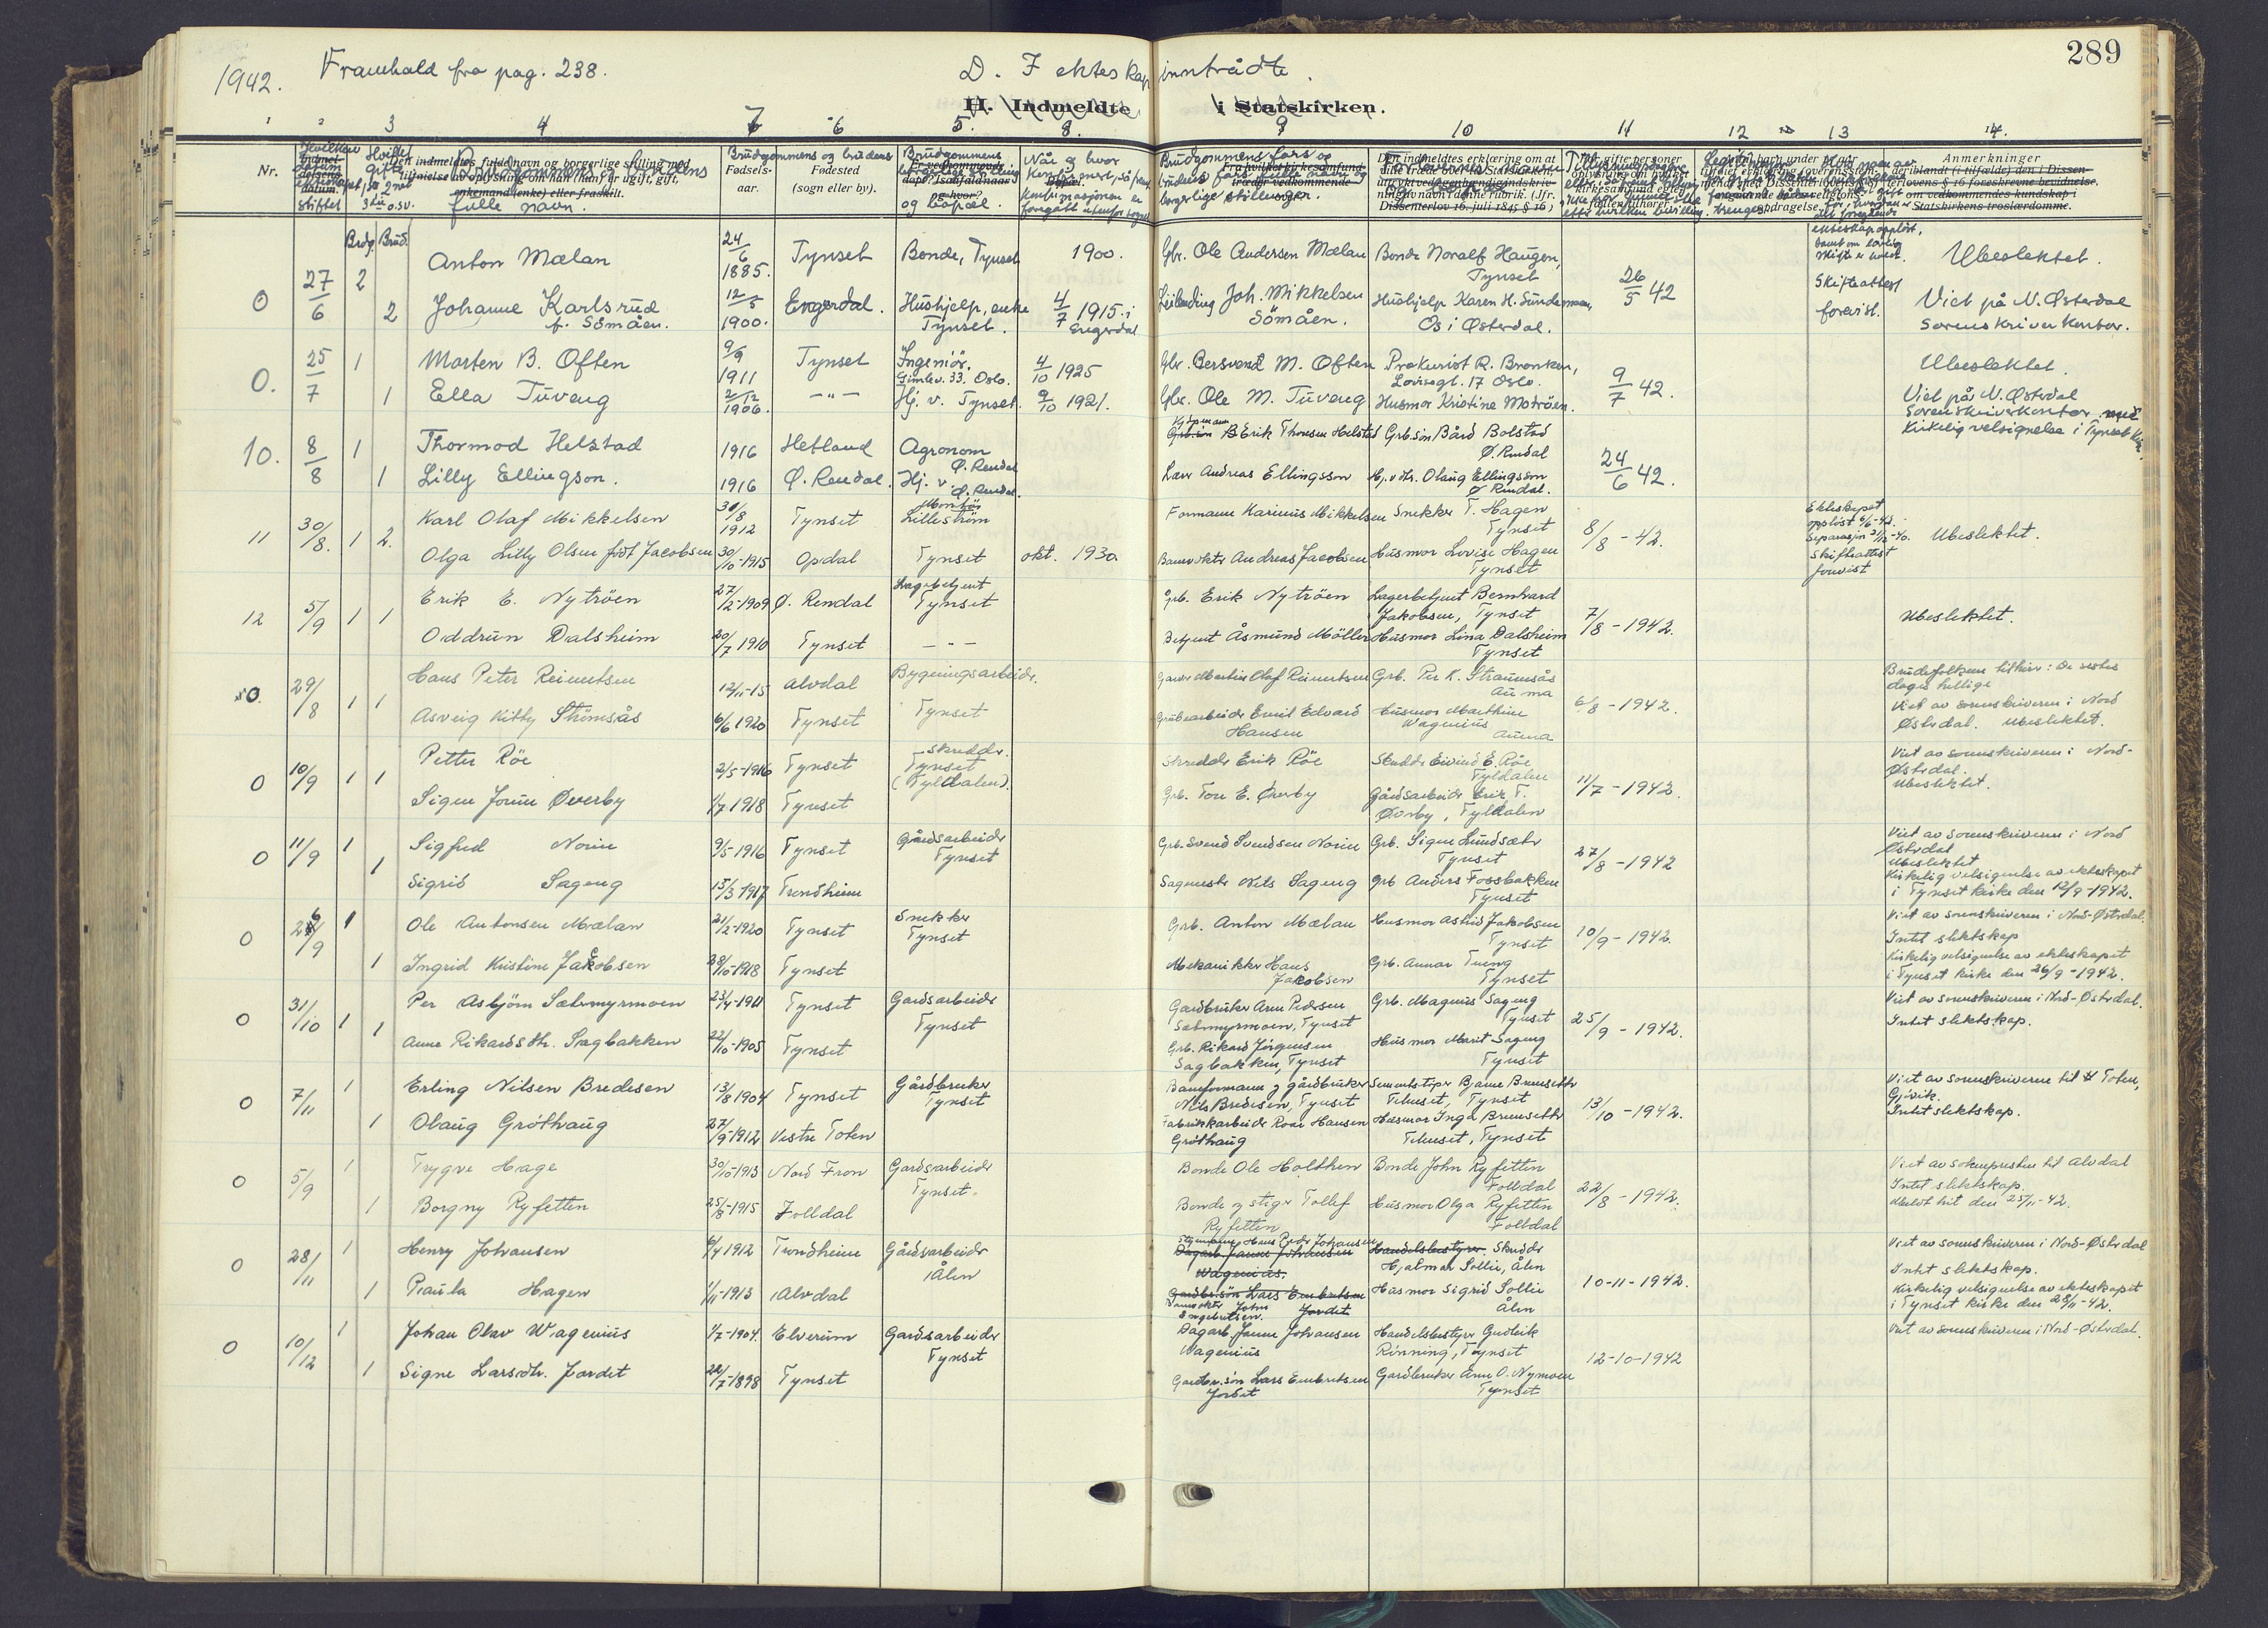 289
1942. Framhald fra pag. 238. D. I ekteskap inntrådte.
H. Indmeldte i Statskirken.
1 2 3 4 7 6 5. 8. 9 10 11 12 13 14.
Nr.
Den indmeldtes fulde navn og borgerlige stilling med
tilføielse av oplysning om han (hun) er ugift, gift,
enkemand (enke) eller fraskilt.
Brudgommens og brudens
fulle navn.
Brudgommens og brudens
Fødsels-
aar.
Fødested
(sogn eller by).
Brudgommens
og bopæl.
Når og hvor
Brudgommens fars og
Den indmeldtes erklæring om at
ville træde over til Statskirken,
Dissenterlov 16. juli 1845 § 16.)
Anmerkninger
deriblandt (i tilfælde) den i Dissen-
terlovens § 16 foreskrevne bevidnelse,
om vedkommendes kundskap i
Statskirkens troslærdomme.
Brdg. Brud.
0 27/6 2 Anton Mælan 24/6 1885. Tynset Bonde, Tynset 1900. Gbr. Ole Andersen Mælan Bonde Noralf Haugen, Tynset 26/5 42 Ubeslektet.
2 Johanne Karlsrud f. Sömåen. 12/5 1900. Engerdal. Hushjelp, enke Tynset. 4/7 1915. i Engerdal Leilending Joh. Mikkelsen Sömåen. Hushjelp Karen H. Sundemoen, Os i Østerdal. Skifteattest forevist. Viet på N. Østerdal Sorenskriver kontor.
0. 25/7 1 Morten B. Often 9/9 1911 Tynset Ingeniör, Gimlev. 33. Oslo. 4/10 1925 Gbr. Bersvend M. Often Prokurist R. Bronken, Lovisegt. 17 Oslo. 9/7 42. Ubeslektet.
1 Ella Tuveng 2/12 1906. -"- Hj. v. Tynset. 9/10 1921. Gbr. Ole M. Tuveng Husmor Kristine Moträen. Viet på N. Østerdal Sorenskriverkontor med Kirkelig velsignelse i Tynset k.
10. 8/8 1 Thormod Helstad 1916 Hetland Agronom Ø. Rendal Kjöpmann Erik Thomsen Helstad Grb. sön Bård Bolstad Ø. Rendal 24/6 42.
1 Lilly Ellingson. 1916 Ø. Rendal. Hj. v. Ø. Rendal. Andreas Ellingsson Hj. v. Olaug Ellingsson Ø Rendal.
11 30/8. 1 2. Karl Olaf Mikkelsen 31/8 1912 Tynset Montör Lilleström Formann Karinius Mikkelsen Snekker T. Hagen Tynset 8/8 - 42. Ekteskapet opplöst Skifteattest forevist Ubeslektet.
Olga Lilly Olsen födt Jacobsen 30/10-1915 Opdal Tynset okt. 1930 Banevokter Andreas Jacobsen Husmor Lovise Hagen Tynset
12 5/9 1 1 Erik E. Nytröen 27/2-1909 Ø. Rendal Lagerbetjent Tynset Grb. Erik Nytröen Lagerbetjent Bernhard Jakobsen, Tynset 7/8 - 1942. Ubeslektet.
Oddrun Dalsheim 20/7 1910 Tynset - " - Betjent Åsmund Möller Husmor Lina Dalsheim Tynset
0. 29/8 1 1 Hans Peter Reinertsen 12/11-15 Alvdal Bygningsarbeider. Tynset Garver Martin Olaf Reinertsen Grb. Per K. Straumsås Auma 6/8 - 1942. Brudefolkene tilhörer: De sistes dagers hellige
Asveig Kitty Strömsås 6/6 1920 Tynset Grubearbeider Emil Edvard Hansen Husmor Marthine Wagenius Auma Viet av sorenskriveren i Nord Østerdal. Ubeslektet.
0 10/9 1 1 Petter Röe 2/5-1916 Tynset Skredder. Tynset (Tyldalen). Skredder Erik Röe Skredder Eivind E. Röe Tyldalen 11/7 - 1942. Viet av sorenskriveren i Nord-Østerdal. Ubeslektet.
Signe Jorun Øverby 1/7 1918 Tynset Grb. Tore E. Øverby Gårdsarbeider Erik T. Øverby, Tyldalen
0 11/9 1 Sigfred Norun 9/5 1916 Tynset Gårdsarbeider Tynset Grb. Svend Svendsen Norun Grb. Signe Lundsæter Tynset 27/8 - 1942 Viet av sorenskriveren i Nord Østerdal Ubeslektet
1 Sigrid Sageng 15/3 1917 Trondheim Sagmester Nils Sageng Grb. Anders Fossbakken Tynset Kirkelig velsignelse av ekteskapet i Tynset kirke den 12/9-1942.
0 26/9 1 Ole Antonsen Mælan 21/2-1920 Tynset Snekker Tynset Grb. Anton Mælan Husmor Astrid Jakobsen Tynset 10/9 - 1942. Viet av sorenskriveren i Nord-Østerdal. Intet slektskap
1 Ingrid Kristine Jacobsen 28/10-1918 Tynset Mekaniker Hans Jacobsen Grb. Annar Tueng Tynset Kirkelig velsignelse av ekteskapet i Tynset kirke den 26/9-1942.
0 31/10 1 Per Asbjörn Sætermyrmoen 23/4-1911 Tynset Gardsarbeider Tynset Gardbruker Arne Pedersen Sætermyrmoen, Tynset Grb. Magnus Sageng Tynset 25/9 - 1942. Viet av sorenskriveren i Nord-Østerdal. Intet slektskap.
1 Anne Rikardsdtr. Sagbakken 22/10-1905 Tynset Grb. Rikard Jörgensen Sagbakken, Tynset Husmor Marit Sageng Tynset
0 7/11 1 Erling Nilsen Bredesen 13/8 1904 Tynset Gårdbruker Tynset Baneformann og gårdbruker Nils Bredesen, Tynset Sementstöper Bjarne Brunsetter Telneset, Tynset 13/10 - 1942. Viet av sorenskriveren til Toten, Gjövik. Intet slektskap.
1 Olaug Gróthaug 27/9-1912 Vestre Toten Fabrikkarbeider Roar Hansen Gróthaug Husmor Inga Brunsetter Telneset, Tynset
0 5/9 1 Trygve Hage 30/10-1913 Nord Fron Gardsarbeider Tynset. Bonde Ole Holthen Bonde John Ryfetten Folldal 22/8 - 1942. Viet av soknepresten til Alvdal Intet slektskap.
1 Borgny Ryfetten 25/8-1915 Folldal Bonde og stiger Tollef Ryfetten Husmor Olga Ryfetten Folldal Meldt hit den 25/11-42.
0 28/11 1 Henry Johansen 6/4 1912 Trondheim Gårdsarbeider Ålen Styrmann Hans Peder Johansen Dagarb Janne Johansen Wagenius. Handelsbestyrer. Skredder Hjalmar Sollie, Ålen 10-11-1942. Viet av sorenskriveren i Nord-Østerdal Intet slektskap.
1 Paula Hagen 1/11-1913 Alvdal Gardbr.sön Lars Embretsen Jordet Banevokter John Engebretsen. Husmor Sigrid Sollie Ålen Kirkelig velsignelse av ekteskapet i Tynset kirke den 28/11-42.
0 10/12 1 Johan Olav Wagenius 1/7-1904. Elverum Gardsarbeider Tynset Dagarb Janne Johansen Wagenius Handelsbestyrer Gudleik Rönning, Tynset 12-10-1942 Viet av sorenskriveren i Nord-Østerdal.
1 Signe Larsdtr. Jordet 22/7-1898 Tynset Gardbr.sön Lars Embretsen Jordet Gardbruker Arne O. Nymoen Tynset